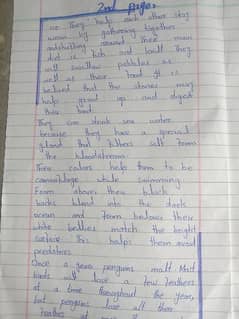 2nd Page
ice They help each other stay
warm by gathering together
and shuffling around Their main
diet is fish and krill They
will swallow pebbles as
well as their food It is
believed that the stones may
help grind up and digest
their food.
They can drink sea water
because they have a special
gland that filters salt from
the bloodstream.
Their colors help them to be
camouflage while swimming
From above their black
backs blend into the dark
ocean and from below their
white bellies match the bright
surface This helps them avoid
predators
Once a year penguins molt Most
birds will lose a few feathers
at a time throughout the year,
but penguins lose all their
feathers at once